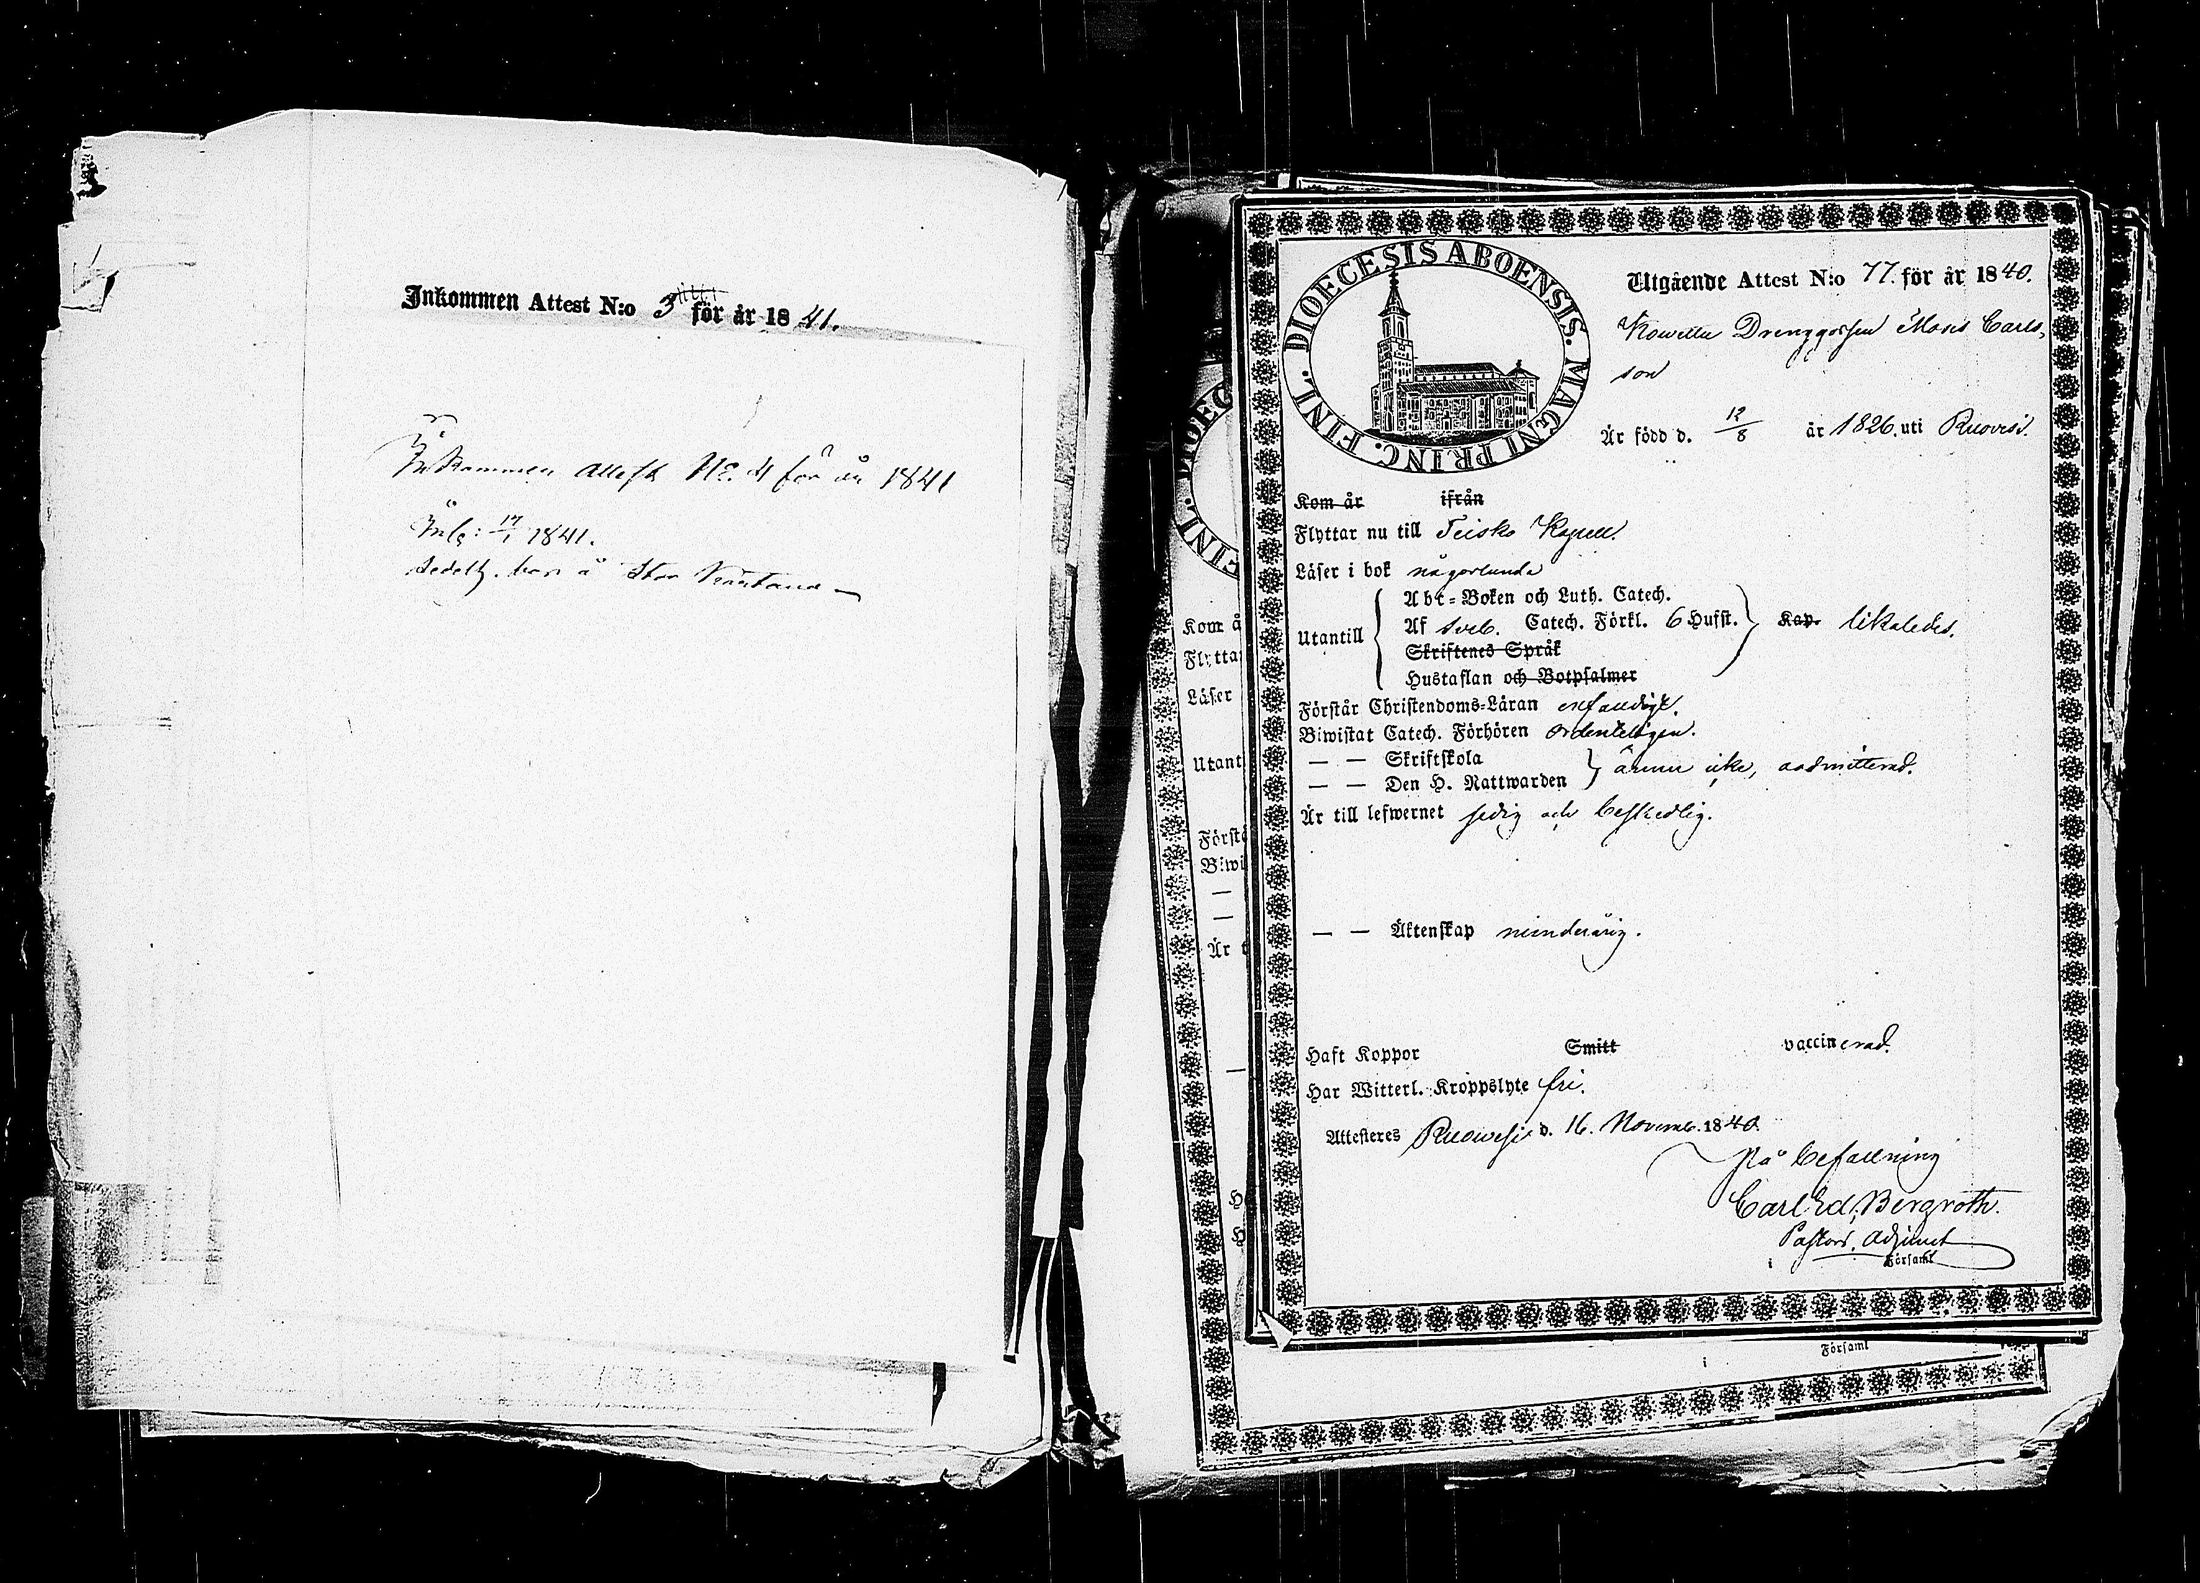 Inkommen Attest N:o 3 för år 1841.
Inkommen Attest No. 4 för år 1841
Inlg: 17/1 1841.
Utgående Attest N:o 77. för år 1840.
DIOECESIS ABOENSIS. MAGNI PRINC. FINL.
Drenggossen Moses Carls-
son
Är född d. 12/8 år 1826. uti Ruovesi.
Kom år ifrån
Flyttar nu till Teisko Kapell.
Läser i bok någorlunda
Abc-Boken och Luth. Catech.
Utantill Af Sveb. Catech. Förkl. 6 Hufst. Kap. likaledes.
Skriftenes Språk
Hustaflan och Botpsalmer
Förstår Christendoms-Läran enfaldigt.
Biwistat Catech. Förhören ordenteligen.
— — Skriftskola
— — Den H. Nattwarden ännu icke, admitterad.
Är till lefwernet sedig och beskedlig.
— — Äktenskap minderårig.
Haft Koppor Smitt vaccinerad.
Har Witterl. Kroppslyte fri.
Attesteres Ruowesi d. 16. Novemb. 1840.
På befallning
Carl Ed. Bergroth.
Pastors Adjunct
i Församl
Kom å
Flytta
Läser
Utant
Förstå
Biwi
—
—
Är t
—
H
H
i Församl